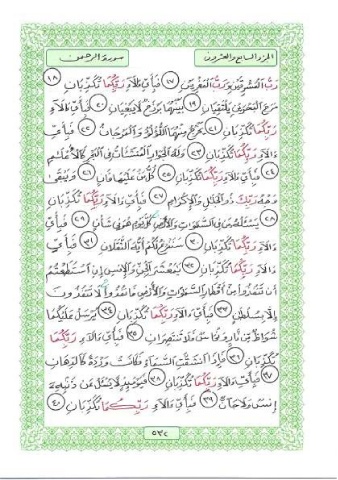 الجزء السابع والعشرون سورة الرحمن
رَبُّ الْمَشْرِقَيْنِ وَرَبُّ الْمَغْرِبَيْنِ ١٧ فَبِأَيِّ آلَاءِ رَبِّكُمَا تُكَذِّبَانِ ١٨
مَرَجَ الْبَحْرَيْنِ يَلْتَقِيَانِ ١٩ بَيْنَهُمَا بَرْزَخٌ لَا يَبْغِيَانِ ٢٠ فَبِأَيِّ آلَاءِ
رَبِّكُمَا تُكَذِّبَانِ ٢١ يَخْرُجُ مِنْهُمَا اللُّؤْلُؤُ وَالْمَرْجَانُ ٢٢ فَبِأَيِّ
آلَاءِ رَبِّكُمَا تُكَذِّبَانِ ٢٣ وَلَهُ الْجَوَارِ الْمُنشَآتُ فِي الْبَحْرِ كَالْأَعْلَامِ
٢٤ فَبِأَيِّ آلَاءِ رَبِّكُمَا تُكَذِّبَانِ ٢٥ كُلُّ مَنْ عَلَيْهَا فَانٍ ٢٦ وَيَبْقَى
وَجْهُ رَبِّكَ ذُو الْجَلَالِ وَالْإِكْرَامِ ٢٧ فَبِأَيِّ آلَاءِ رَبِّكُمَا تُكَذِّبَانِ
٢٨ يَسْأَلُهُ مَن فِي السَّمَاوَاتِ وَالْأَرْضِ كُلَّ يَوْمٍ هُوَ فِي شَأْنٍ ٢٩ فَبِأَيِّ
آلَاءِ رَبِّكُمَا تُكَذِّبَانِ ٣٠ سَنَفْرُغُ لَكُمْ أَيُّهَ الثَّقَلَانِ ٣١ فَبِأَيِّ
آلَاءِ رَبِّكُمَا تُكَذِّبَانِ ٣٢ يَا مَعْشَرَ الْجِنِّ وَالْإِنسِ إِنِ اسْتَطَعْتُمْ
أَن تَنفُذُوا مِنْ أَقْطَارِ السَّمَاوَاتِ وَالْأَرْضِ فَانفُذُوا لَا تَنفُذُونَ
إِلَّا بِسُلْطَانٍ ٣٣ فَبِأَيِّ آلَاءِ رَبِّكُمَا تُكَذِّبَانِ ٣٤ يُرْسَلُ عَلَيْكُمَا
شُوَاظٌ مِّن نَّارٍ وَنُحَاسٌ فَلَا تَنتَصِرَانِ ٣٥ فَبِأَيِّ آلَاءِ رَبِّكُمَا
تُكَذِّبَانِ ٣٦ فَإِذَا انشَقَّتِ السَّمَاءُ فَكَانَتْ وَرْدَةً كَالدِّهَانِ
٣٧ فَبِأَيِّ آلَاءِ رَبِّكُمَا تُكَذِّبَانِ ٣٨ فَيَوْمَئِذٍ لَّا يُسْأَلُ عَن ذَنبِهِ
إِنسٌ وَلَا جَانٌّ ٣٩ فَبِأَيِّ آلَاءِ رَبِّكُمَا تُكَذِّبَانِ ٤٠
٥٣٢